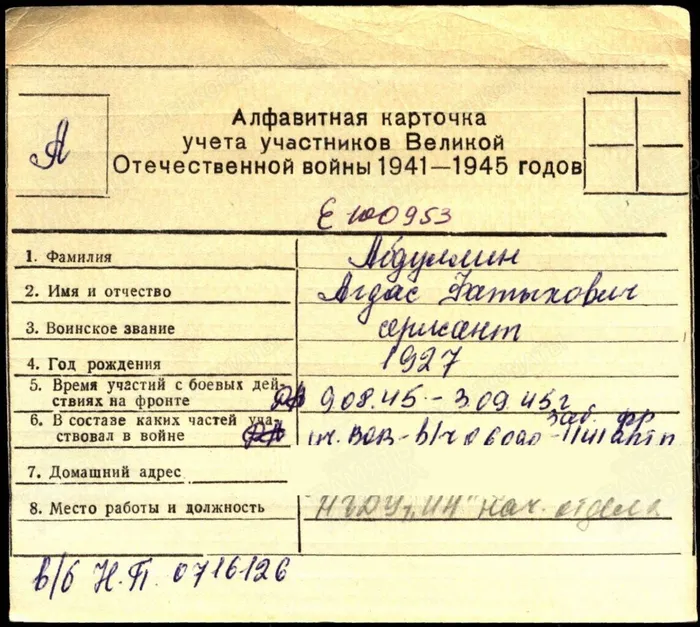 А
Алфавитная карточка
учета участников Великой
Отечественной войны 1941—1945 годов
Е 100953
1. Фамилия Абдуллин
2. Имя и отчество Агдас Фатыхович
3. Воинское звание сержант
4. Год рождения 1927
5. Время участий с боевых дей-
ствиях на фронте 9.08.45 - 3.09.45г
6. В составе каких частей уча- Заб. фр
ствовал в войне
7. Домашний адрес
8. Место работы и должность нач. отдела
в/б Н.П. 0716126